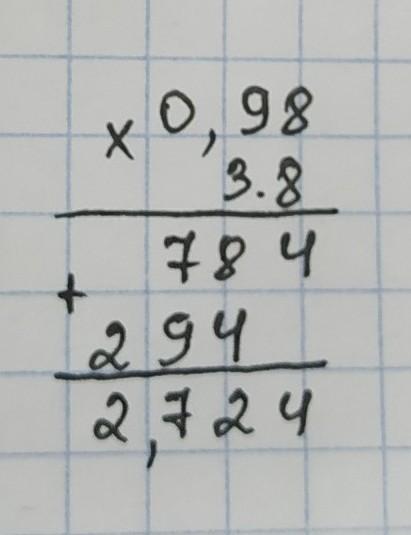 × 0,98
3.8
784
+
294
2,724